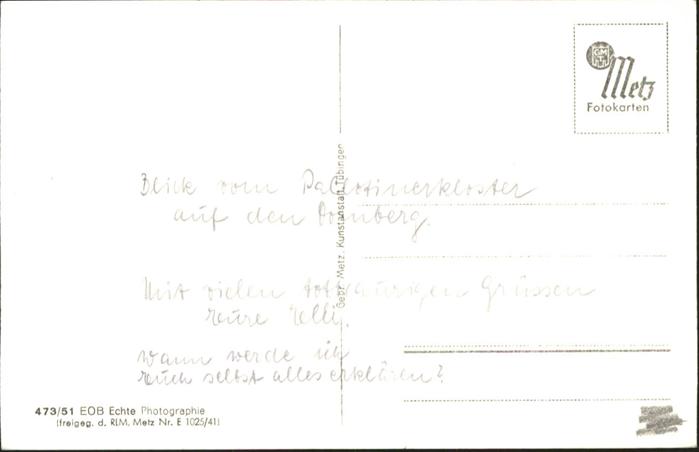 GM
Metz
Fotokarten
Blick vom Pallotinerkloster
auf den Domberg.
Mit vielen tottraurigen Grüssen
eure Elli.
Wann werde ich
euch selbst alles erklären?
Gebr. Metz, Kunstanstalt, Tübingen
473/51 EOB Echte Photographie
(freigeg. d. RLM, Metz Nr. E 1025/41)